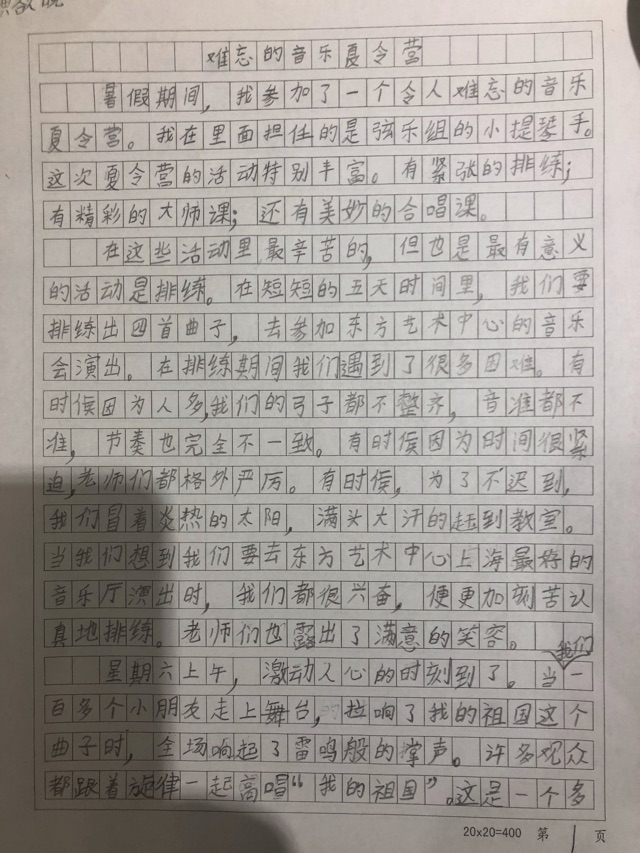 难忘的音乐夏令营
暑假期间，我参加了一个令人难忘的音乐
夏令营。我在里面担任的是弦乐组的小提琴手。
这次夏令营的活动特别丰富。有紧张的排练；
有精彩的大师课；还有美妙的合唱课。
在这些活动里最辛苦的，但也是最有意义
的活动是排练。在短短的五天时间里，我们要
排练出四首曲子，去参加东方艺术中心的音乐
会演出。在排练期间我们遇到了很多困难。有
时侯因为人多,我们的弓子都不整齐，音准都不
准，节奏也完全不一致。有时侯因为时间很紧
迫,老师们都格外严厉。有时侯，为了不迟到，
我们冒着炎热的太阳，满头大汗的赶到教室。
当我们想到我们要去东方艺术中心上海最好的
音乐厅演出时，我们都很兴奋，便更加刻苦认
真地排练。老师们也露出了满意的笑容。
我们
星期六上午，激动人心的时刻到了。当一
百多个小朋友走上舞台，拉响了我的祖国这个
曲子时，全场响起了雷鸣般的掌声。许多观众
都跟着旋律一起高唱“我的祖国”。这是一个多
20x20=400 第 1 页